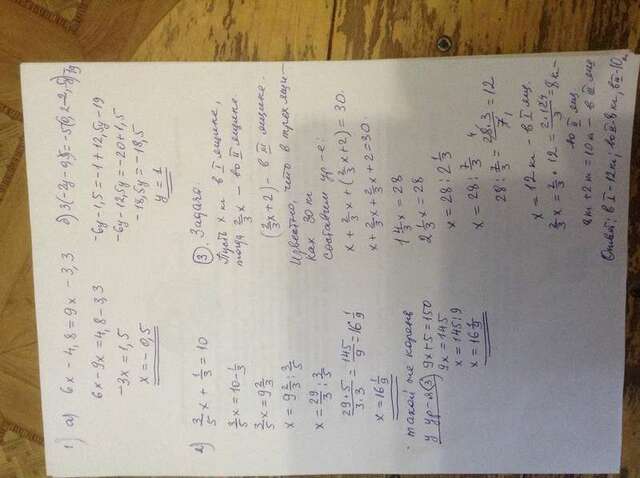 1) а) 6x - 4,8 = 9x - 3,3
6x - 9x = 4,8 - 3,3
-3x = 1,5
x = -0,5
-6y - 1,5 = -1 + 12,5y - 19
-6y - 12,5y = -20 + 1,5
-18,5y = -18,5
y = 1
2) 3/5 x + 1/3 = 10
3/5 x = 10 - 1/3
3/5 x = 9 2/3
x = 9 2/3 : 3/5
x = 29/3 : 3/5
29·5/3·3 = 145/9 = 16 1/9
x = 16 1/9
такой же корень
у ур-я (3) 9x + 5 = 150
9x = 145
x = 145 : 9
x = 16 1/9
(3). Задача.
Пусть x кг в I ящике,
тогда 2/3 x - во II ящике.
(2/3 x + 2) - в III ящике.
Известно, что в трех ящи-
ках 30 кг
составим ур-е:
x + 2/3 x + (2/3 x + 2) = 30.
x + 2/3 x + 2/3 x + 2 = 30.
1 4/3 x = 28
2 1/3 x = 28
x = 28 : 2 1/3
x = 28 : 7/3
28 : 7/3 = 28·3/7 = 12
x = 12 кг - в I ящ.
во II ящ.
8кг + 2кг = 10кг - в III ящ
Ответ: в I - 12кг, во II - 8кг, в III - 10кг